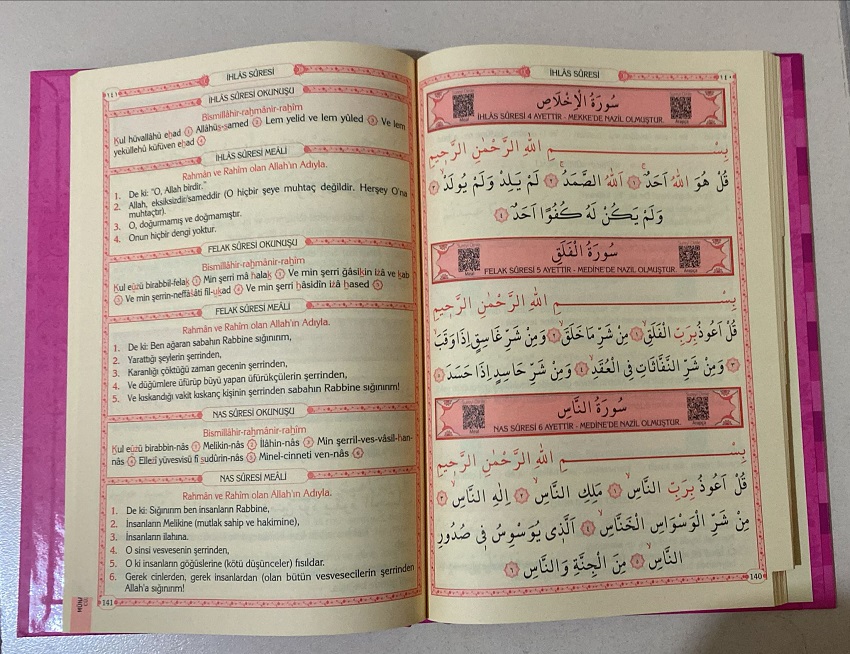 İHLÂS SÛRESİ
١٤١
İHLÂS SÛRESİ OKUNUŞU
Bismillâhir-raḥmânir-raḥîm
Kul hüvallâhü eḥad ① Allâhüṣ-ṣamed ② Lem yelid ve lem yûled ③ Ve lem
yeküllehû küfüven eḥad ④
İHLÂS SÛRESİ MEÂLİ
Rahmân ve Rahîm olan Allah'ın Adıyla.
1. De ki: "O, Allah birdir."
2. Allah, eksiksizdir/sameddir (O hiçbir şeye muhtaç değildir. Herşey O'na
muhtaçtır).
3. O, doğurmamış ve doğmamıştır.
4. Onun hiçbir dengi yoktur.
FELAK SÛRESİ OKUNUŞU
Bismillâhir-raḥmânir-raḥîm
Kul eûzü birabbil-felaḳ ① Min şerri mâ ḫalaḳ ② Ve min şerri ğâsiḳin iẕâ ve ḳab
③ Ve min şerrin-neffâs̱âti fil-uḳad ④ Ve min şerri ḥâsidin iẕâ ḥased ⑤
FELAK SÛRESİ MEÂLİ
Rahmân ve Rahîm olan Allah'ın Adıyla.
1. De ki: Ben ağaran sabahın Rabbine sığınırım,
2. Yarattığı şeylerin şerrinden,
3. Karanlığı çöktüğü zaman gecenin şerrinden,
4. Ve düğümlere üfürüp büyü yapan üfürükçülerin şerrinden,
5. Ve kıskandığı vakit kıskanç kişinin şerrinden sabahın Rabbine sığınırım!
NAS SÛRESİ OKUNUŞU
Bismillâhir-raḥmânir-raḥîm
Kul eûẕü birabbin-nâs ① Melikin-nâs ② İlâhin-nâs ③ Min şerril-ves-vâsil-ḫan-
nâs ④ Elleẕî yüvesvisü fî ṣudûrin-nâs ⑤ Minel-cinneti ven-nâs ⑥
NAS SÛRESİ MEÂLİ
Rahmân ve Rahîm olan Allah'ın Adıyla.
1. De ki: Sığınırım ben insanların Rabbine,
2. İnsanların Melikine (mutlak sahip ve hakimine),
3. İnsanların ilahına.
4. O sinsi vesvesenin şerrinden,
5. O ki insanların göğüslerine (kötü düşünceler) fısıldar.
6. Gerek cinlerden, gerek insanlardan (olan bütün vesvesecilerin şerrinden
Allah'a sığınırım!
141
İHLÂS SÛRESİ
١٤٠
سُورَةُ الْاِخْلَاصِ
İHLÂS SÛRESİ 4 AYETTİR - MEKKE'DE NAZİL OLMUŞTUR.
Meal
Arapça
بِسْــــــــمِ اللّٰهِ الرَّحْمٰنِ الرَّحٖيمِ
قُلْ هُوَ اللّٰهُ اَحَدٌۚ ﴿١﴾ اَللّٰهُ الصَّمَدُۚ ﴿٢﴾ لَمْ يَلِدْ وَلَمْ يُولَدْۙ ﴿٣﴾
وَلَمْ يَكُنْ لَهُ كُفُوًا اَحَدٌ ﴿٤﴾
سُورَةُ الْفَلَقِ
FELAK SÛRESİ 5 AYETTİR - MEDİNE'DE NAZİL OLMUŞTUR.
Meal
Arapça
بِسْــــــــمِ اللّٰهِ الرَّحْمٰنِ الرَّحٖيمِ
قُلْ اَعُوذُ بِرَبِّ الْفَلَقِۙ ﴿١﴾ مِنْ شَرِّ مَا خَلَقَۙ ﴿٢﴾ وَمِنْ شَرِّ غَاسِقٍ اِذَا وَقَبَۙ
﴿٣﴾ وَمِنْ شَرِّ النَّفَّاثَاتِ فِي الْعُقَدِۙ ﴿٤﴾ وَمِنْ شَرِّ حَاسِدٍ اِذَا حَسَدَ ﴿٥﴾
سُورَةُ النَّاسِ
NAS SÛRESİ 6 AYETTİR - MEDİNE'DE NAZİL OLMUŞTUR.
Meal
Arapça
بِسْــــــــمِ اللّٰهِ الرَّحْمٰنِ الرَّحٖيمِ
قُلْ اَعُوذُ بِرَبِّ النَّاسِۙ ﴿١﴾ مَلِكِ النَّاسِۙ ﴿٢﴾ اِلٰهِ النَّاسِۙ ﴿٣﴾
مِنْ شَرِّ الْوَسْوَاسِ الْخَنَّاسِۙ ﴿٤﴾ اَلَّذٖي يُوَسْوِسُ فٖي صُدُورِ
النَّاسِۙ ﴿٥﴾ مِنَ الْجِنَّةِ وَالنَّاسِ ﴿٦﴾
140